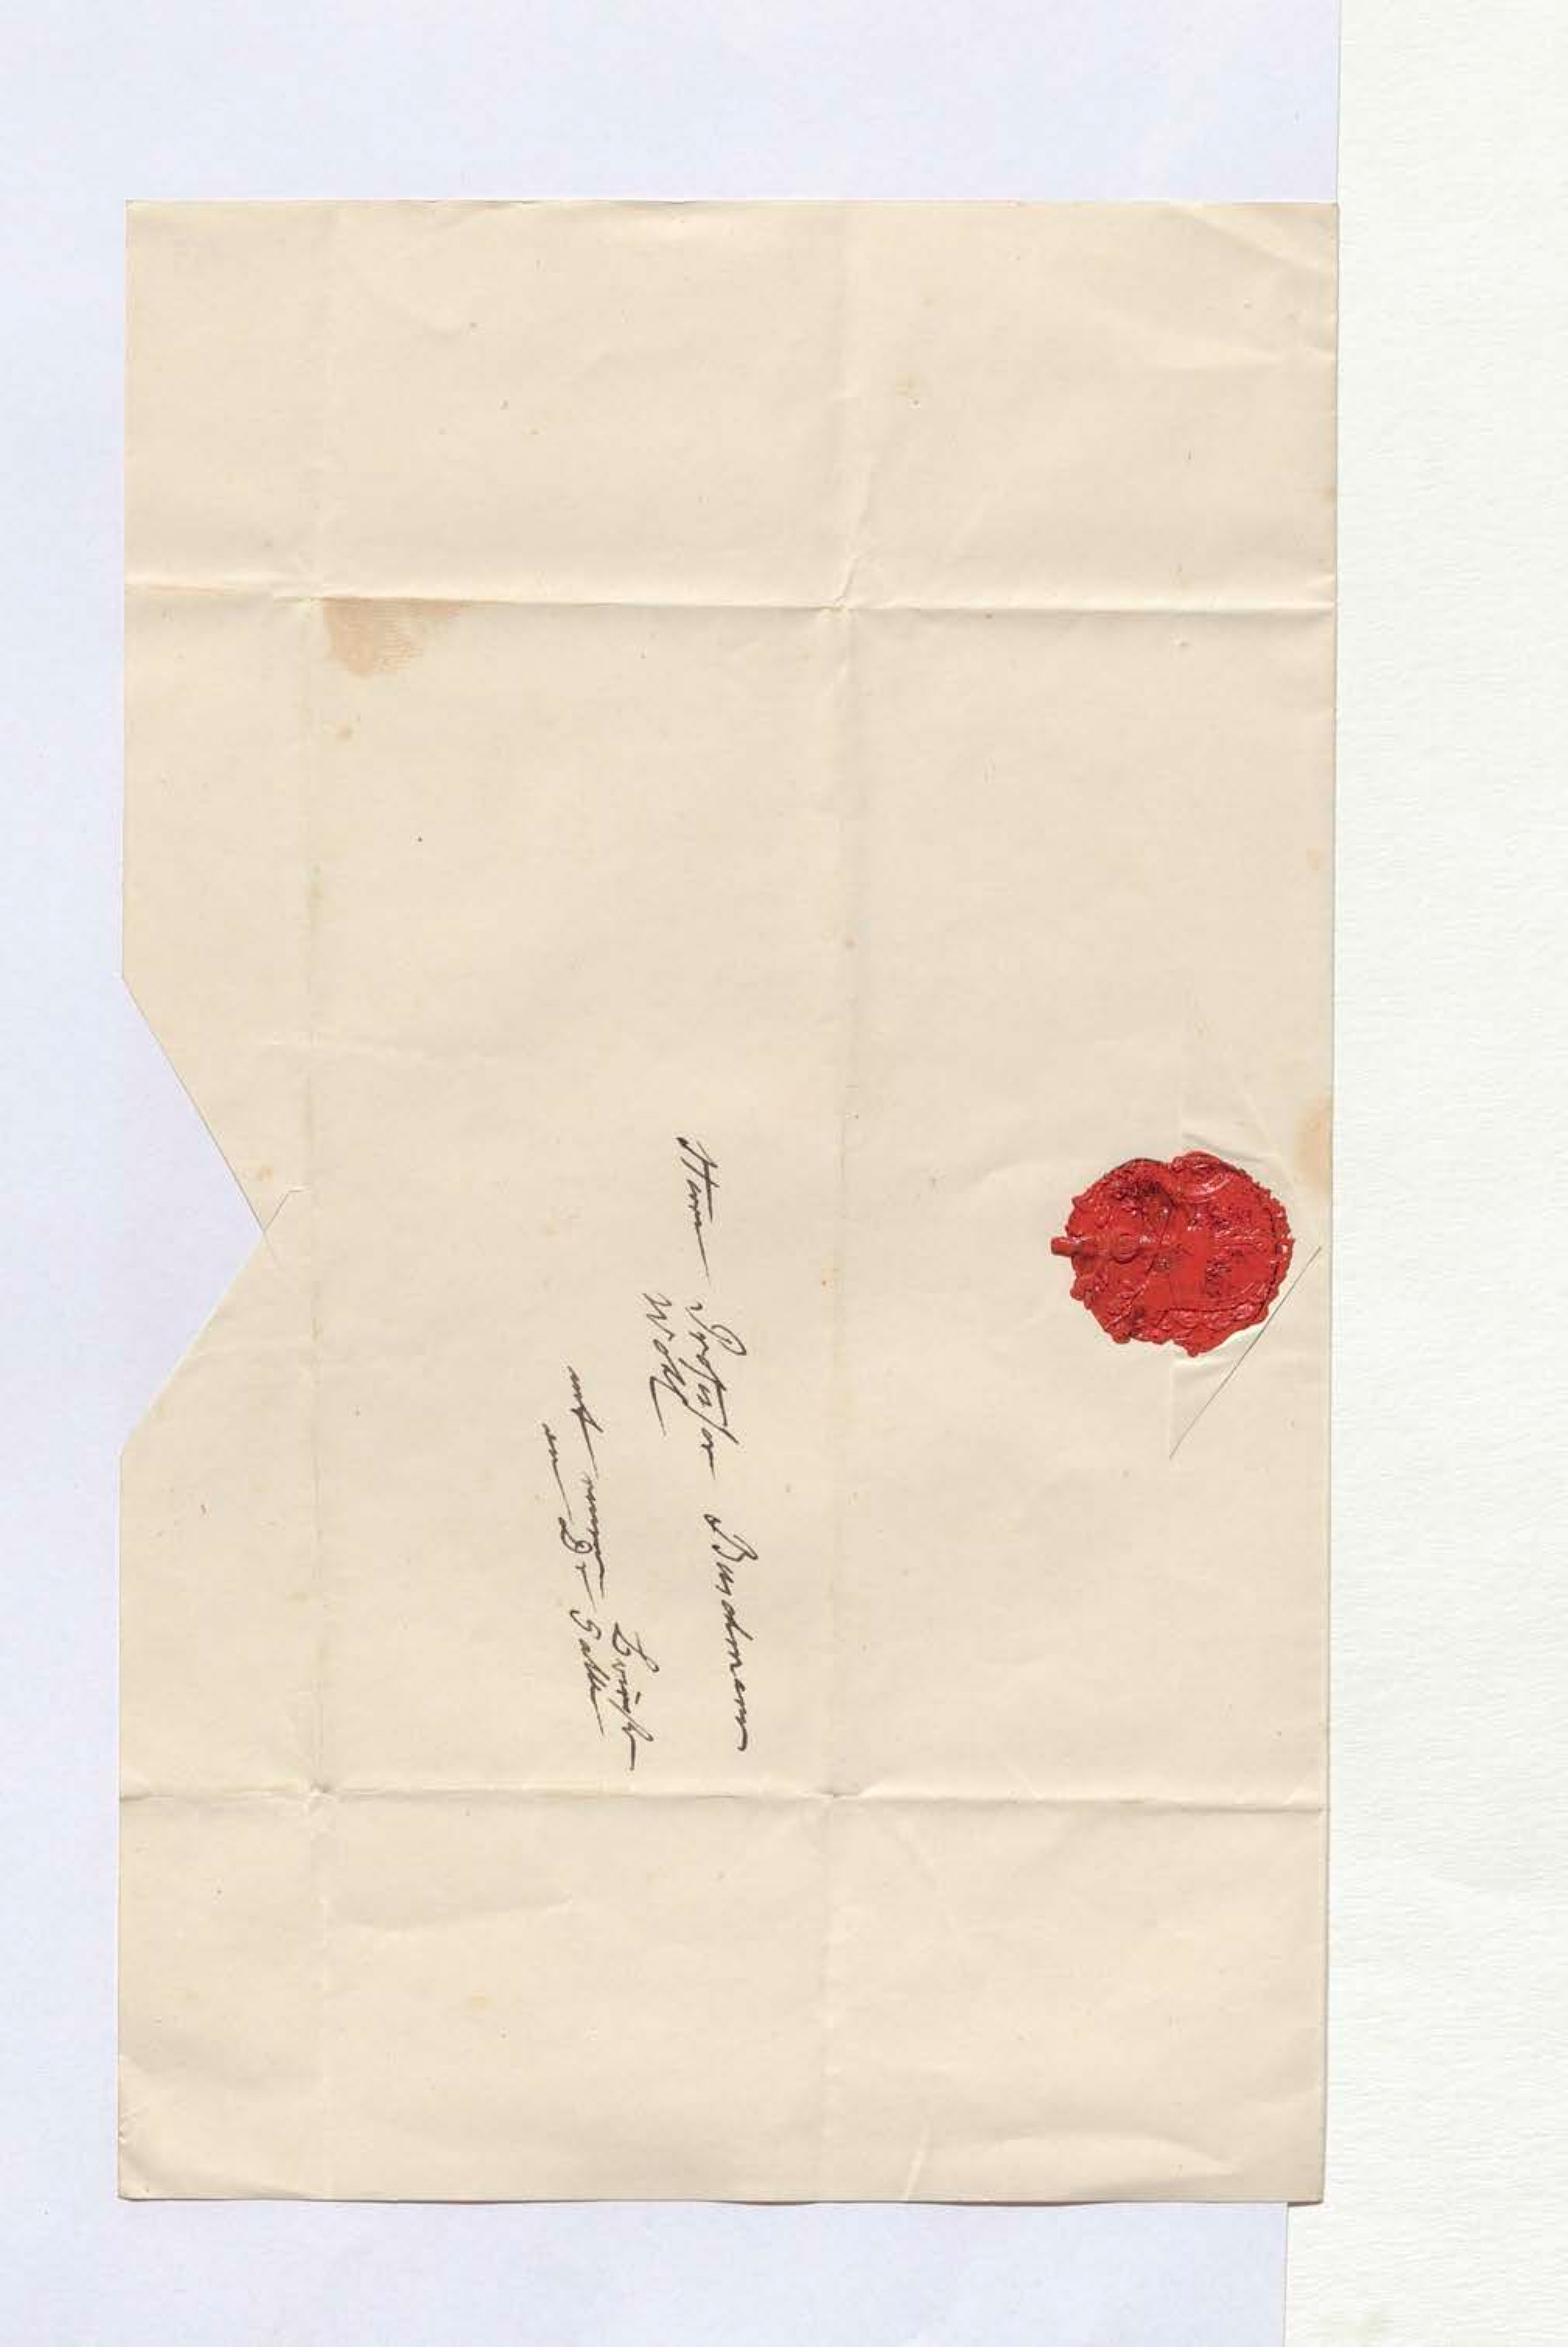 Herrn Professor Buschmann
Wohl
mit Briefe
an Dr Galle